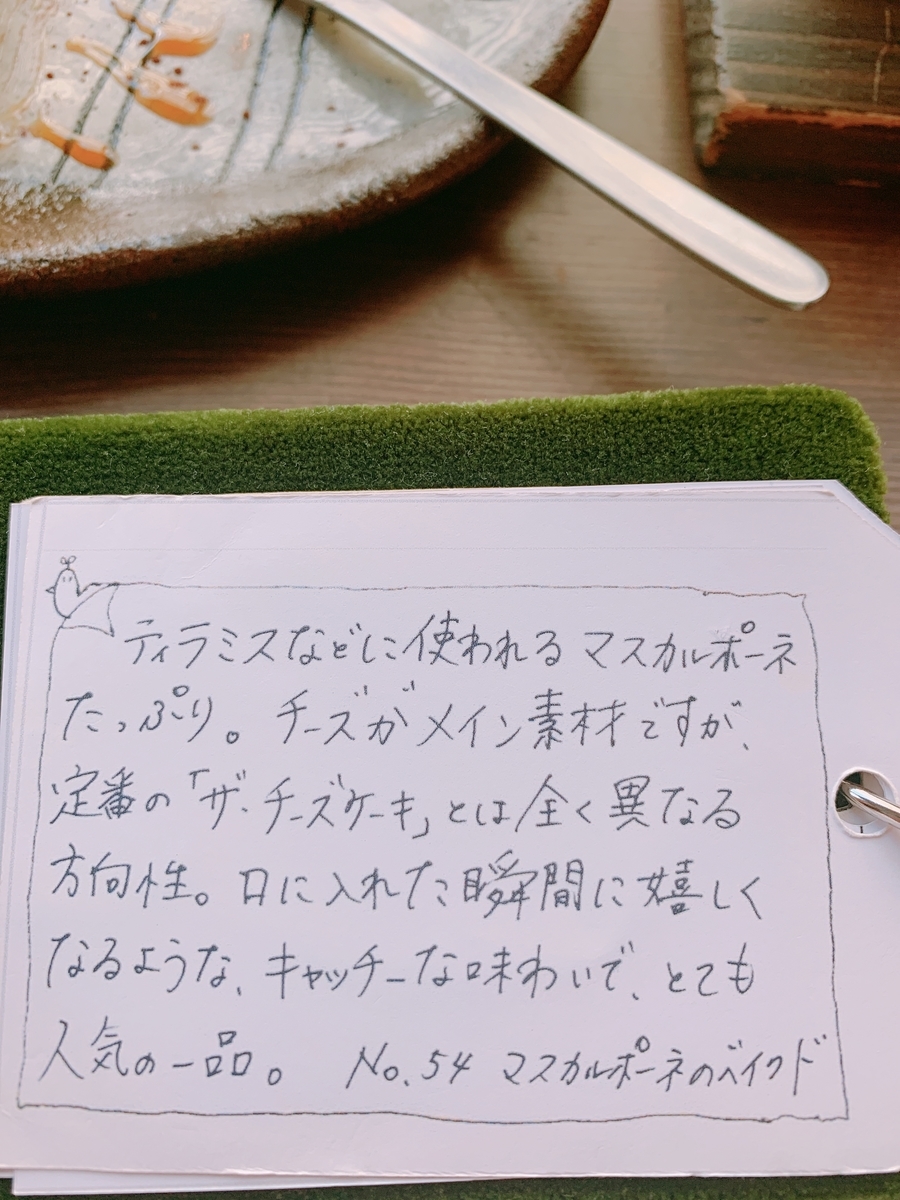 ティラミスなどに使われるマスカルポーネ
たっぷり。チーズがメイン素材ですが、
定番の「ザ・チーズケーキ」とは全く異なる
方向性。口に入れた瞬間に嬉しく
なるような、キャッチーな味わいで、とても
人気の一品。 No.54 マスカルポーネのベイクド